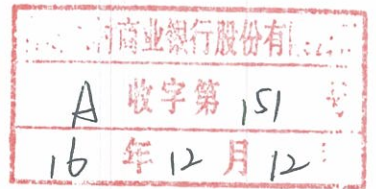 商业银行股份有
A 收字第 151 号
16 年 12 月 12